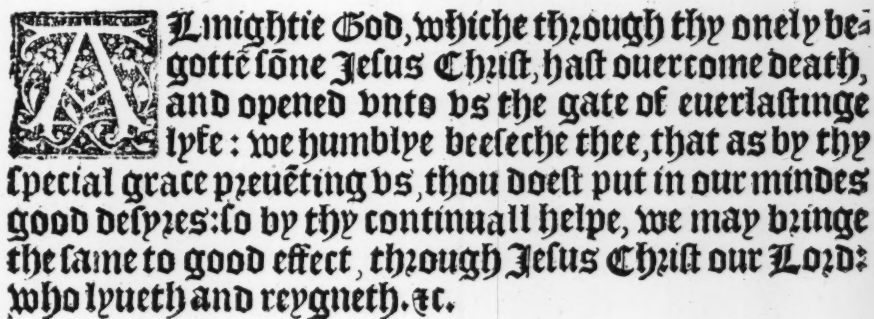 ALmightie God, whiche through thy onely be⸗
gottẽ sõne Jesus Christ, hast ouercome death,
and opened vnto vs the gate of euerlastinge
lyfe : we humblye beeseche thee, that as by thy
special grace preuẽting vs, thou doest put in our mindes
good desyres: so by thy continuall helpe, we may bringe
the same to good effect, through Jesus Christ our Lord:
who lyueth and reygneth. ⁊c.